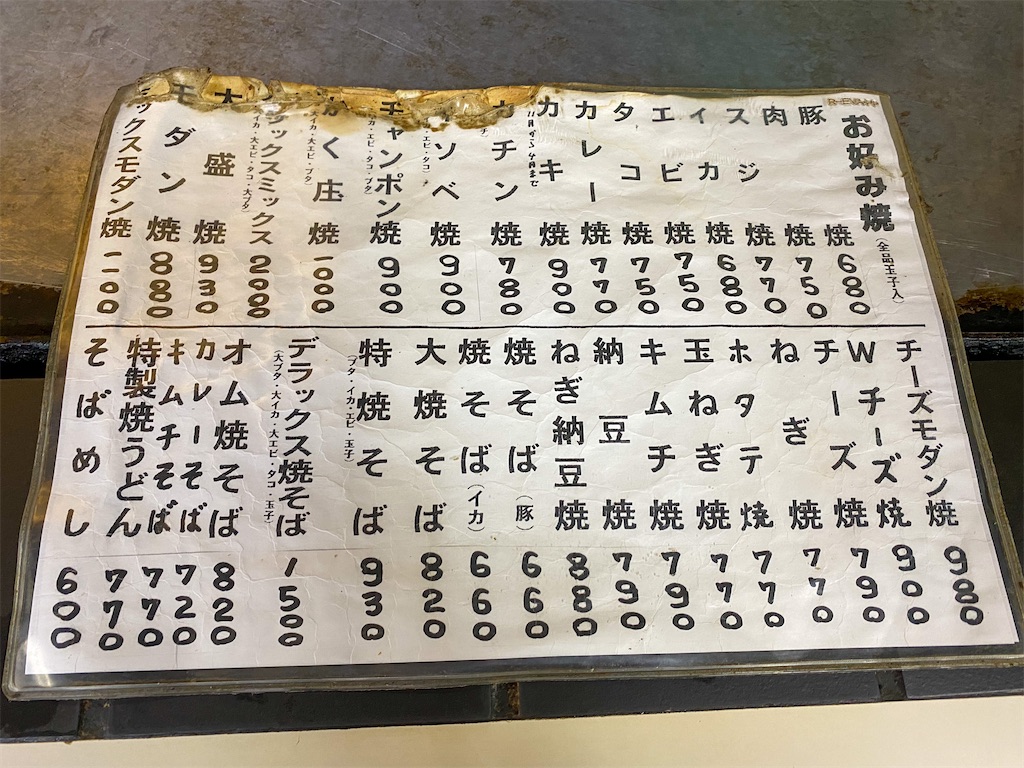 お好み焼(全品玉子入)
豚焼 680
肉焼 750
スジ焼 770
イカ焼 680
エビ焼 750
タコ焼 750
カレー焼 770
カキ焼 900
11月から4月まで
カチン焼 780
ソベ焼 900
チャンポン焼 900
イカ・エビ・タコ・ブタ)
く庄焼 1000
イカ・大エビ・ブタ)
ラックスミックス 200
大イカ・大エビ・タコ・大ブタ)
大盛焼 930
モダン焼 880
ックスモダン焼 1100
チーズモダン焼 980
Wチーズ焼 900
チーズ焼 790
ねぎ焼 770
ホタテ焼 770
玉ねぎ焼 770
キムチ焼 790
納豆焼 790
ねぎ納豆焼 880
焼そば(豚) 660
焼そば(イカ) 660
大焼そば 820
特焼そば 930
(ブタ・イカ・エビ・玉子)
デラックス焼そば 1500
(大ブタ・大イカ・大エビ・タコ・玉子)
オム焼そば 820
カレーそば 720
キムチそば 770
特製焼うどん 770
そばめし 600